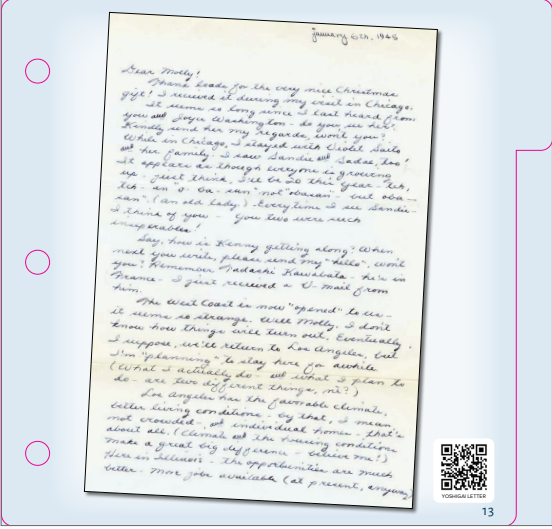 January 6th, 1945
Dear Molly!
Thank loads for the very nice Christmas
gift! I recieved it during my visit in Chicago.
It seems so long since I last heard from
you and Joyce Washington - do you see her?
Kindly send her my regards, won't you?
While in Chicago, I stayed with Violet Saito
and her family. I saw Sandie and Sadae, too!
It appears as though everyone is growing
up - just think, I'll be 20 this year - tch,
tch - an "o-ba-san" not "obasan" - but oba--
san" - (an old lady). Everytime I see Sandie -
I think of you - you two were such
inseperables!
Say, how is Kenny getting along? When
next you write, please send my "hello", won't
you? Remember Tadashi Kawabata - he's in
France - I just recieved a V-mail from
him.
The West Coast is now "opened" to us -
it seems so strange. Well Molly, I don't
know how things will turn out. Eventually
I suppose, we'll return to Los Angeles, but
I'm "planning" to stay here for awhile
(What I actually do - and what I plan to
do - are two different things, no?)
Los Angeles has the favorable climate,
better living conditions - by that, I mean,
not crowded - and individual homes - that's
about all. (Climate and the housing conditions
make a great big difference - believe me!)
Here in Illinois - the opportunities are much
better - more jobs available (at present, anyway)
YOSHIGAI LETTER
13